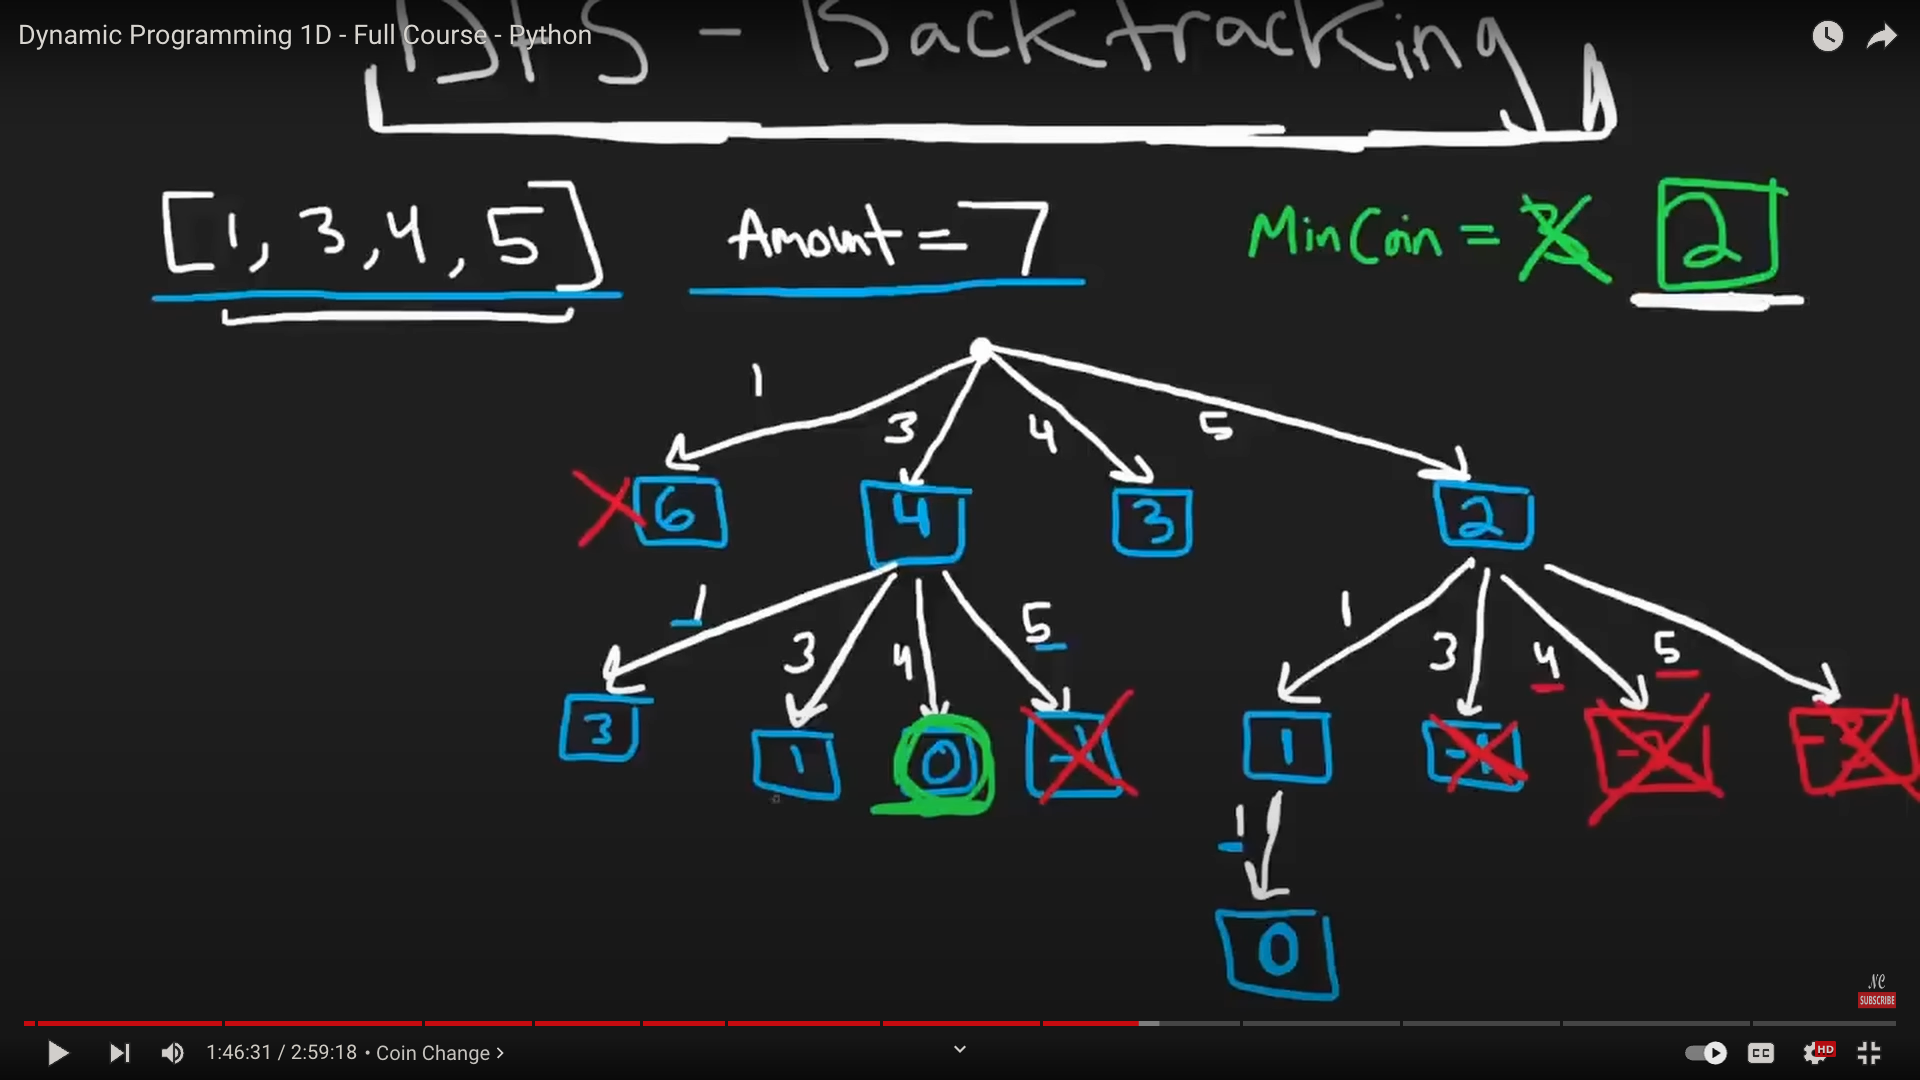 Dynamic Programming 1D - Full Course - Python
DFS - Backtracking
[1, 3, 4, 5]
Amount = 7
MinCoin =
2
1
3
4
5
6
4
3
2
1
3
4
5
1
3
4
5
3
1
0
-1
1
-1
-2
-3
-1
0
NC
SUBSCRIBE
1:46:31 / 2:59:18 • Coin Change >
CC
HD